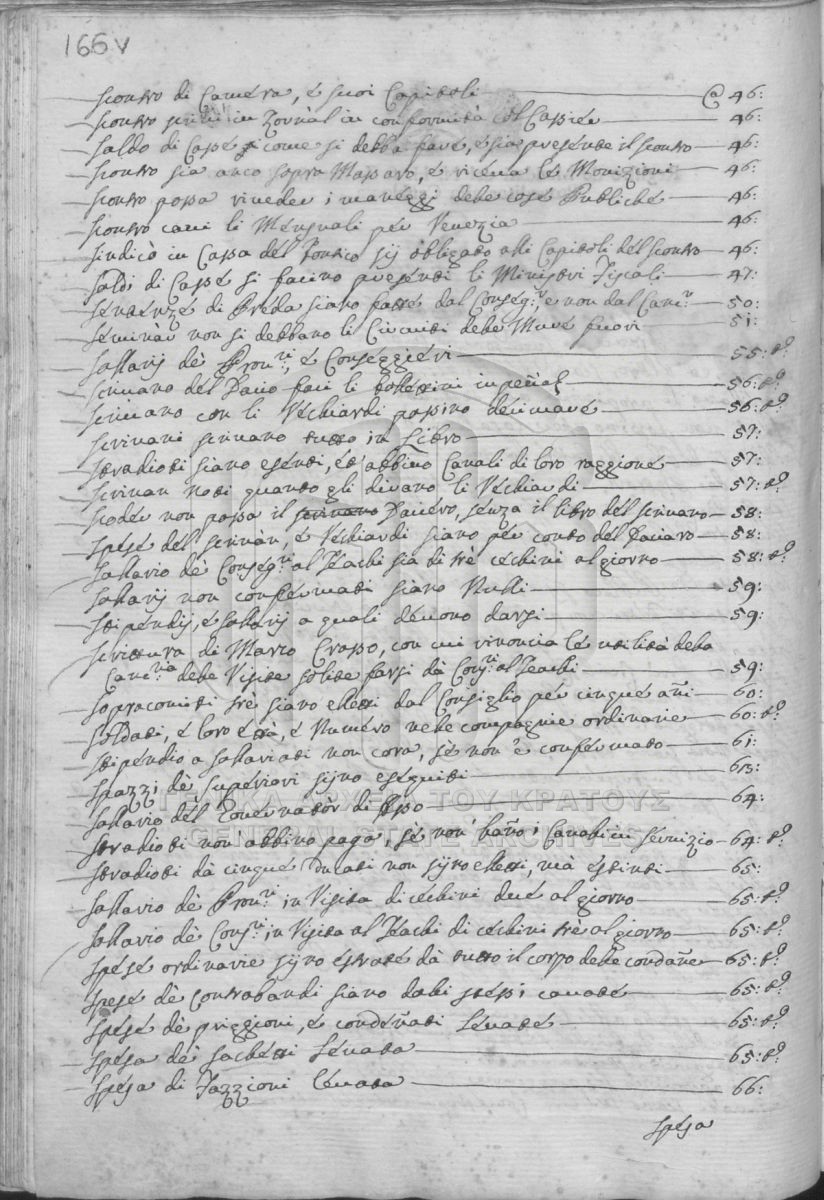 166v
Scontro di Camera, è suoi Capitoli @ 46:
Scontro scrivi in Zornàl in conformità del Cassier 46:
Saldo di Casse come si debba fare, è sia presente il Scontro 46:
Scontro sia anco sopra Massaro, è vicina le Monizioni 46:
Scontro possa riveder i maneggi delle cose Publiche 46:
Scontro cavi li Mensuali per Venezia 46:
Sindicò in Cassa del Fontico sij obligato alli Capitoli del Scontro 46:
Saldi di Casse si facino presenti li Ministri Fiscali 47:
Sentenze di Preda siano fatte dal Conseg:r, e non dal Cam:r 50:
Seminàr non si debbano li Circuiti delle Mure fuori 51:
Sallarij de Prov:ri, è Conseggieri 55: tº
Scrivano del Dacio faci li bollettini in 56: tº
Scrivano con li Vechiardi possino decimare 56: tº
Scrivani scrivano tutto in Libro 57:
Stradioti siano esenti, et' abbino Cavali di loro raggione 57:
Scrivan noti quanto gli dirano li Vechiardi 57: tº
Scoder non possa il scrivano Daciero, senza il libro del Scrivano 58:
Spese del Scrivàn, è Vechiardi siano per conto del Daciaro 58:
Sallario dè Conseg:ri al Zeachi sia di trè cechini al giorno 58: tº
Sallarij non confermati siano Nulli 59:
Stipendij, è sallarij a quali devono darsi 59:
Scrittura di Marco Crasso, con cui rinoncia le utilità della
Cam:ra delle Visite solite farsi dà Cons:ri al Zeachi 59:
Sopracomiti trè siano eletti dal Consiglio per cinque añi 60:
Soldati, è loro età, è Numero nelle compagnie ordinarie 60: tº
Stipendio a sallariati non cora, se non è confermato 61:
Spazzi dè superiori sijno eseguiti 63:
Sallario del Governatòr di Asso 64:
ΓΕΝΙΚΑ ΑΡΧΕΙΑ ΤΟΥ ΚΡΑΤΟΥΣ
GENERAL STATE ARCHIVES
Stradioti non abbino paga, sè non hano i Cavali in servizio 64: tº
Stradioti dà cinque Ducati non sijno eletti, mà estinti 65:
Sallario dè Prov:ri in Visita di cechini due al giorno 65: tº
Sallario dè Cons:ri in Visita al Zeachi di cechini trè al giorno 65: tº
Spese ordinarie sijno estrate dà tutto il corpo delle condañe 65: tº
Spese dè contrabandi siano dalli stessi cavate 65: tº
Spese dè priggioni, è condeñati Levate 65: tº
Spesa dei sachetti Levata 65: tº
Spesa di Fazzioni Levata 66:
Spesa